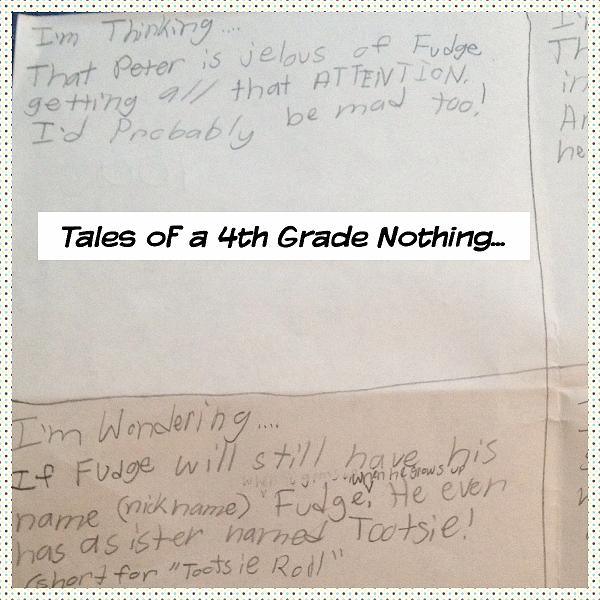 I'm Thinking....
That Peter is jelous of Fudge
getting all that ATTENTION.
I'd Probably be mad too!
Tales of a 4th Grade Nothing...
I'm Wondering....
If Fudge will still have his
when he grows up
name (nickname) Fudge. He even
has a sister named Tootsie!
(short for "Tootsie Roll"
I'm
Th
in
Ar
he